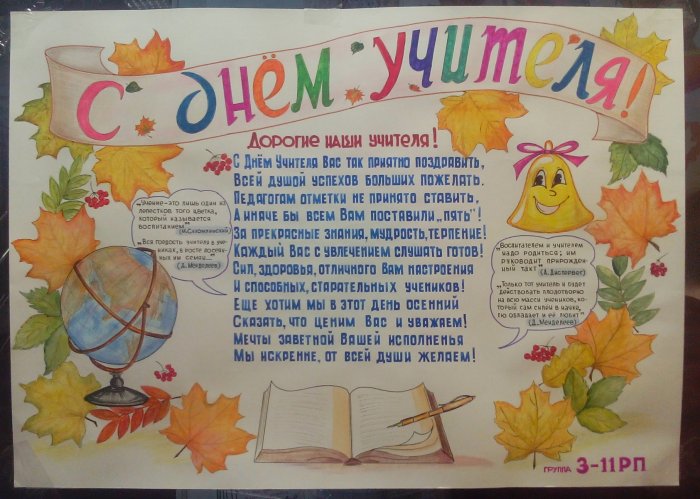 С ДНЁМ УЧИТЕЛЯ!
ДОРОГИЕ НАШИ УЧИТЕЛЯ!
С ДНЁМ УЧИТЕЛЯ ВАС ТАК ПРИЯТНО ПОЗДРАВИТЬ,
ВСЕЙ ДУШОЙ УСПЕХОВ БОЛЬШИХ ПОЖЕЛАТЬ.
ПЕДАГОГАМ ОТМЕТКИ НЕ ПРИНЯТО СТАВИТЬ,
А ИНАЧЕ БЫ ВСЕМ ВАМ ПОСТАВИЛИ „ПЯТЬ"!
ЗА ПРЕКРАСНЫЕ ЗНАНИЯ, МУДРОСТЬ, ТЕРПЕНИЕ!
КАЖДЫЙ ВАС С УВЛЕЧЕНИЕМ СЛУШАТЬ ГОТОВ!
СИЛ, ЗДОРОВЬЯ, ОТЛИЧНОГО ВАМ НАСТРОЕНИЯ
И СПОСОБНЫХ, СТАРАТЕЛЬНЫХ УЧЕНИКОВ!
ЕЩЕ ХОТИМ МЫ В ЭТОТ ДЕНЬ ОСЕННИЙ
СКАЗАТЬ, ЧТО ЦЕНИМ ВАС И УВАЖАЕМ!
МЕЧТЫ ЗАВЕТНОЙ ВАШЕЙ ИСПОЛНЕНЬЯ
МЫ ИСКРЕННЕ, ОТ ВСЕЙ ДУШИ ЖЕЛАЕМ!
„Учение-это лишь один из
лепестков того цветка,
который называется
воспитанием"
(В. Сухомлинский)
„Вся гордость учителя в уче-
никах, в росте посеян-
ных им семян..."
(Д. Менделеев)
„Воспитателем и учителем
надо родиться; им
руководит прирожден-
ный такт"
(А. Дистервег)
„Только тот учитель и будет
действовать плодотворно
на всю массу учеников, ко-
торый сам силён в науке,
ею обладает и её любит"
(Д. Менделеев)
ГРУППА 3-11РП